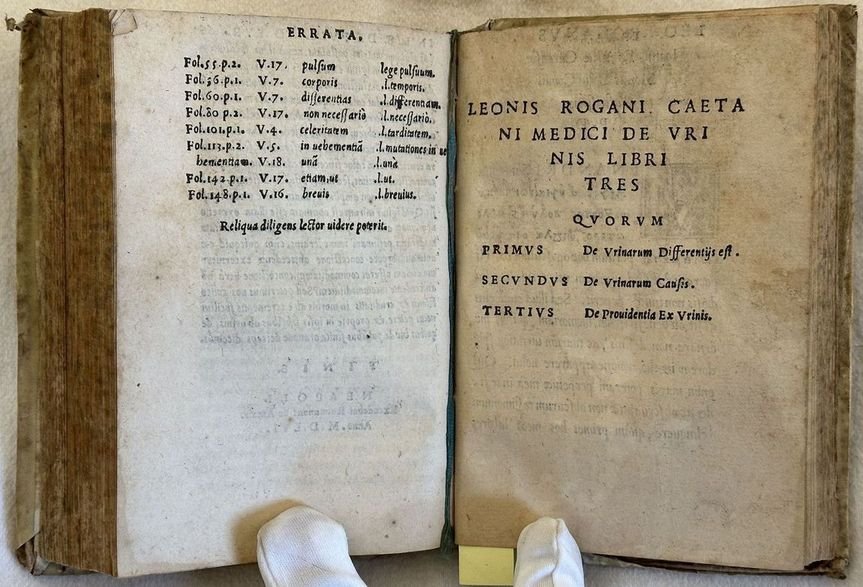 ERRATA.
Fol. 55. p. 2. V. 17. pulsum lege pulsuum.
Fol. 56. p. 1. V. 7. corporis .l. temporis.
Fol. 60. p. 1. V. 7. differentias .l. differentiam.
Fol. 80 p. 2. V. 17. non necessariò .l. necessariò.
Fol. 101. p. 1. V. 4. celeritatem .l. tarditatem.
Fol. 113. p. 2. V. 5. in uehementiā .l. mutationes in ue
hementiam. V. 18. unā .l. unà
Fol. 142. p. 1. V. 17. etiam, ut .l. ut.
Fol. 148. p. 1. V. 16. breuis .l. breuius.
Reliqua diligens lector uidere poterit.
LEONIS ROGANI CAETA
NI MEDICI DE VRI
NIS LIBRI
TRES
QVORVM
PRIMVS De Vrinarum Differentijs est.
SECVNDVS De Vrinarum Causis.
TERTIVS De Prouidentia Ex Vrinis.